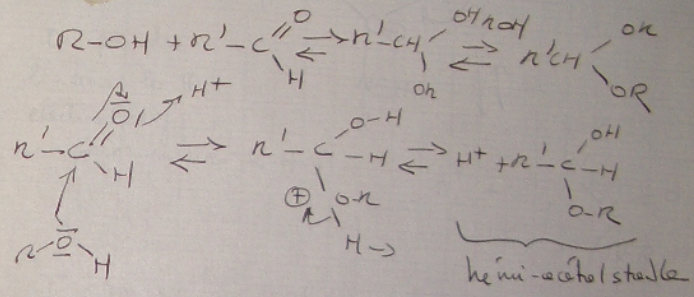 R-OH + R'-C O H ⇌ R'-CH OH OR ROH ⇌ R'CH OR OR
R'-C O H H+ ⇌ R'-C O-H -H ⊕ O-R H → ⇌ H+ + R'-C OH -H O-R
R-O H
hémi-acétal stable